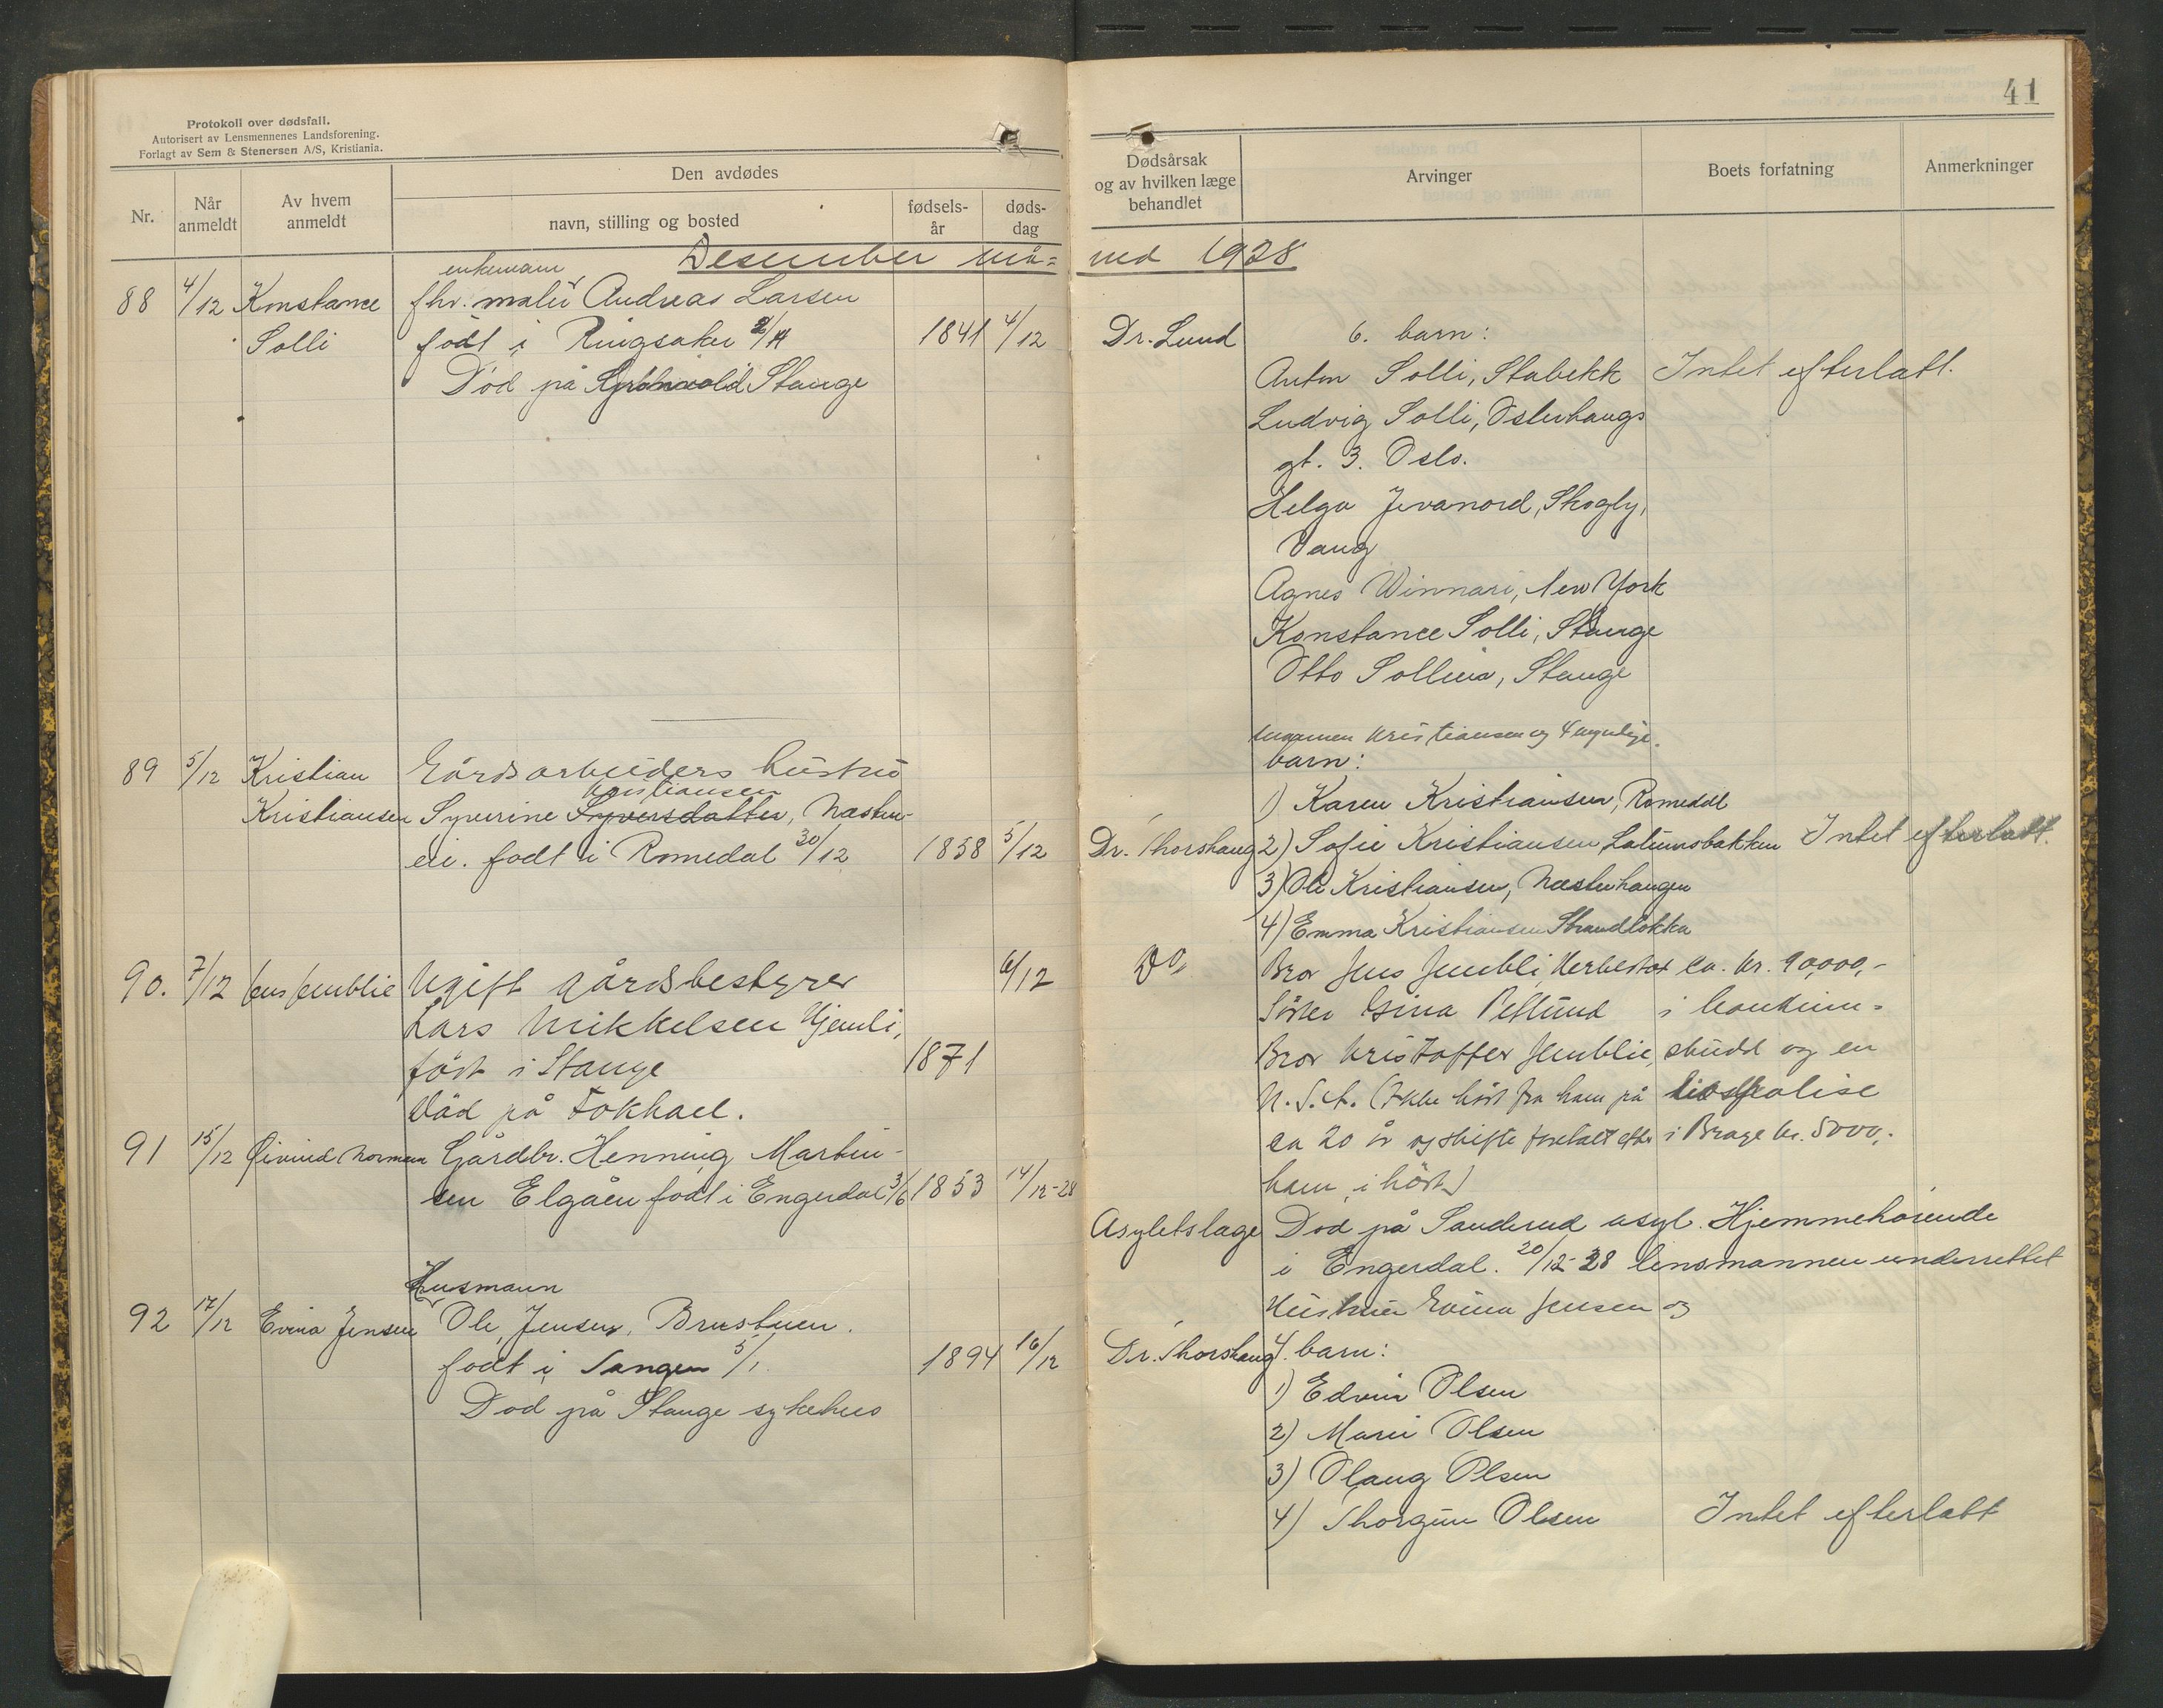 Protokoll over dødsfall.
Autorisert av Lensmennenes Landsforening.
Forlagt av Sem & Stenersen A/S, Kristiania.
Nr.
Når anmeldt
Av hvem anmeldt
Den avdødes
navn, stilling og bosted
fødsels-år
døds-dag
Desember må=
88 4/12 Konstance
enkemann
fhv. maler Andreas Larsen
Solli
født i Ringsaker
1841 4/12
Død på Stange
89 5/12 Kristian Gårdsarbeiders hustru
Kristiansen
Kristiansen Syverine Syversdatter, Næsten-
eie. født i Romedal 30/12 1858 5/12
90. 7/12 Jens Jemblie Ugift gårdsbestyrer 6/12
Lars Mikkelsen Hjemli,
født i Stange 1871
Död på Fokhael.
91 15/12 Øivind Norman Gårdbr. Henning Martin-
sen Elgåen født i Engerdal 3/6 1853 14/12-28
Husmann
92 17/12 Evina Jensen Ole Jensen, Brustuen.
født i Tangen 5/1 1894 16/12
Død på Stange sykehus
41
Dødsårsak
og av hvilken læge
behandlet
Arvinger
Boets forfatning
Anmerkninger
ned 1928
Dr. Lund 6. barn:
Anton Solli, Stabekk Intet efterlatt.
Ludvig Solli, Østerhaugs
gt. 3. Oslo.
Helga Jevanord, Skogly,
Vang
Agnes Winnari, New York
Konstance Solli, Stange
Otto Sollien, Stange
Kristiansen og 4 myndige
barn:
1) Karen Kristiansen, Romedal
Dr. Thorshaug 2) Sofie Kristiansen, Intet efterlatt.
3) Ole Kristiansen, Næstenhaugen
4) Emma Kristiansen Strandlökka
Do, Bror Jens Jembli, ca. kr. 90,000,-
Söster Gina i
Bror Kristoffer Jemblie, skudd og en
U.S.A. (Ikke hört fra ham på livspolise
ca 20 år og skifte foretatt efter i Brage kr. 5000,-
ham i höst)
Asylets læge Død på Sanderud asyl. Hjemmehørende
i Engerdal. 20/12-28 lensmannen underrettet
Hustruen Evina Jensen og
Dr. Thorshaug 4. barn:
1) Edvin Olsen
2) Marie Olsen
3) Olaug Olsen
4) Thorgun Olsen Intet efterlatt